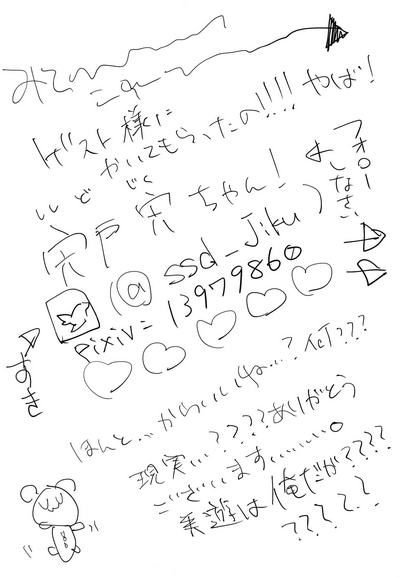 みて
これ
ゲスト様に
かいてもらったの!!!! やば!
ししど じく
宍戸 宍ちゃん!
(@ssd_Jiku)
pixiv=13979860
フォローしなさい
すき
ほんと…かわいいね…?何???
現実…????ありがとう
ございます…………。
美遊は俺だが????
?????